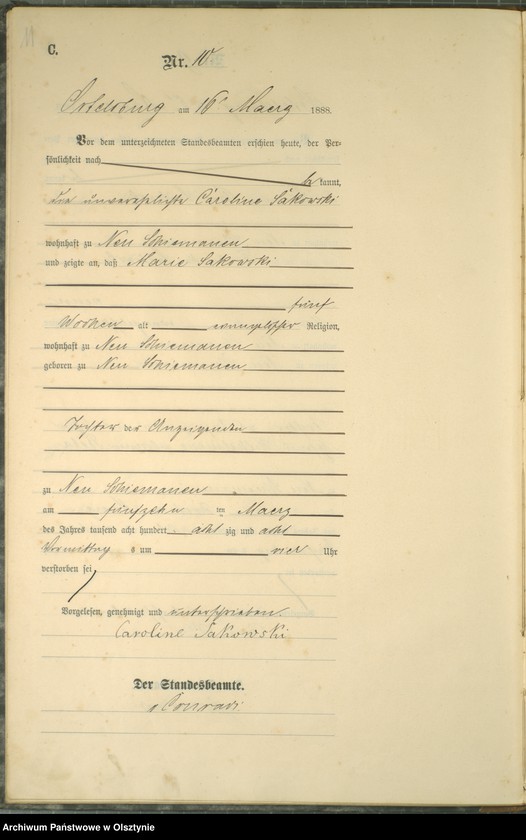 C.
Nr. 10
Ortelsburg am 16 Maerz 1888.
Vor dem unterzeichneten Standesbeamten erschien heute, der Per-
sönlichkeit nach
be kannt,
die unverehelichte Caroline Sakowski
wohnhaft zu Neu Schiemanen
und zeigte an, daß Marie Sakowski
fünf
Wochen alt evangelischer Religion,
wohnhaft zu Neu Schiemanen
geboren zu Neu Schiemanen
Tochter der Anzeigenden
zu Neu Schiemanen
am fünfzehn ten Maerz
des Jahres tausend acht hundert acht zig und acht
Vormittag s um vier Uhr
verstorben sei
Vorgelesen, genehmigt und unterschrieben.
Caroline Sakowski
Der Standesbeamte.
Conradi.
Archiwum Państwowe w Olsztynie